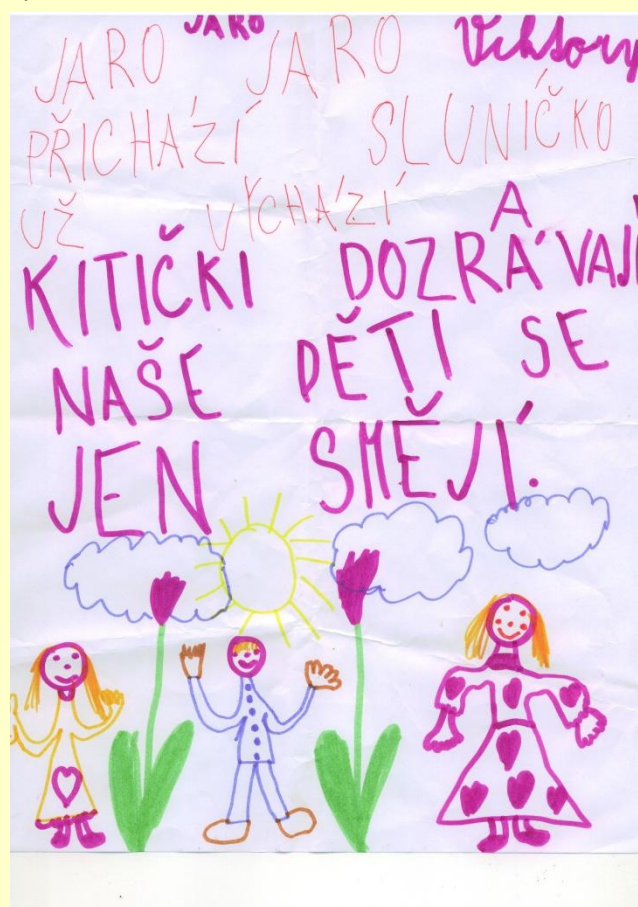 JARO
JARO JARO Viktory
PŘICHÁZÍ SLUNÍČKO
UŽ VYCHÁZÍ A
KITIČKI DOZRÁVAJ
NAŠE DĚTI SE
JEN SMĚJÍ.